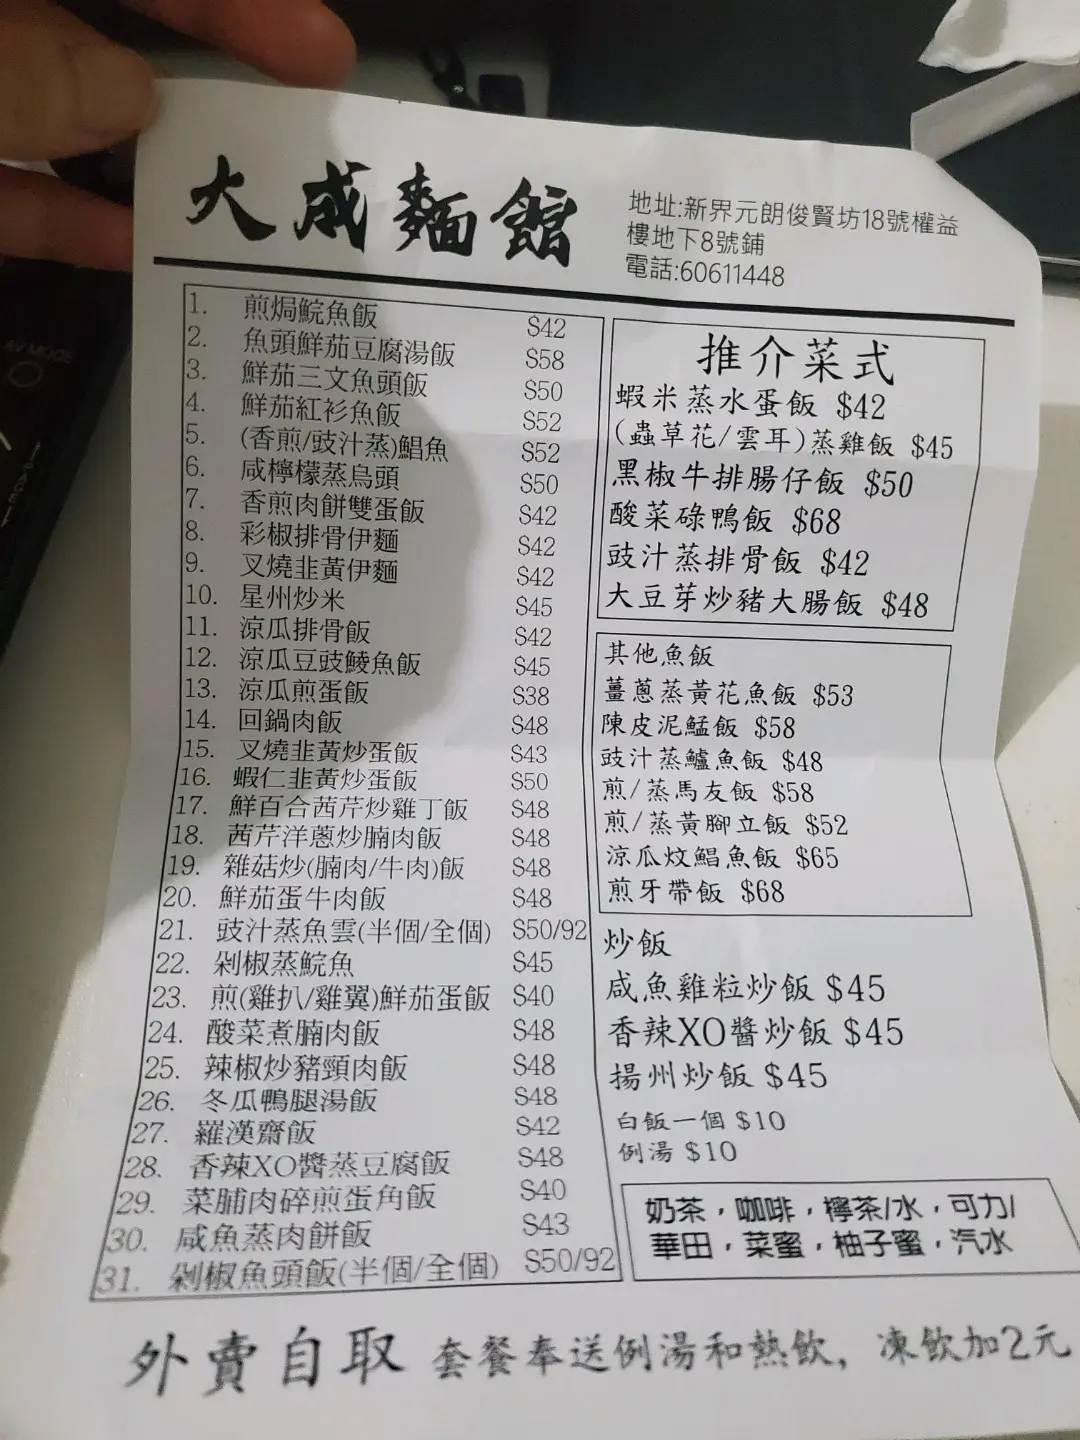 大成麵館
地址:新界元朗俊賢坊18號權益
樓地下8號鋪
電話:60611448
1. 煎焗鯇魚飯 $42
2. 魚頭鮮茄豆腐湯飯 $58
3. 鮮茄三文魚頭飯 $50
4. 鮮茄紅衫魚飯 $52
5. (香煎/豉汁蒸)鯧魚 $52
6. 咸檸檬蒸烏頭 $50
7. 香煎肉餅雙蛋飯 $42
8. 彩椒排骨伊麵 $42
9. 叉燒韭黃伊麵 $42
10. 星州炒米 $45
11. 涼瓜排骨飯 $42
12. 涼瓜豆豉鯪魚飯 $45
13. 涼瓜煎蛋飯 $38
14. 回鍋肉飯 $48
15. 叉燒韭黃炒蛋飯 $43
16. 蝦仁韭黃炒蛋飯 $50
17. 鮮百合茜芹炒雞丁飯 $48
18. 茜芹洋蔥炒腩肉飯 $48
19. 雜菇炒(腩肉/牛肉)飯 $48
20. 鮮茄蛋牛肉飯 $48
21. 豉汁蒸魚雲(半個/全個) $50/92
22. 剁椒蒸鯇魚 $45
23. 煎(雞扒/雞翼)鮮茄蛋飯 $40
24. 酸菜煮腩肉飯 $48
25. 辣椒炒豬頸肉飯 $48
26. 冬瓜鴨腿湯飯 $48
27. 羅漢齋飯 $42
28. 香辣XO醬蒸豆腐飯 $48
29. 菜脯肉碎煎蛋角飯 $40
30. 咸魚蒸肉餅飯 $43
31. 剁椒魚頭飯(半個/全個) $50/92
推介菜式
蝦米蒸水蛋飯 $42
(蟲草花/雲耳)蒸雞飯 $45
黑椒牛排腸仔飯 $50
酸菜碌鴨飯 $68
豉汁蒸排骨飯 $42
大豆芽炒豬大腸飯 $48
其他魚飯
薑蔥蒸黃花魚飯 $53
陳皮泥鯭飯 $58
豉汁蒸鱸魚飯 $48
煎/蒸馬友飯 $58
煎/蒸黃腳立飯 $52
涼瓜炆鯧魚飯 $65
煎牙帶飯 $68
炒飯
咸魚雞粒炒飯 $45
香辣XO醬炒飯 $45
揚州炒飯 $45
白飯一個 $10
例湯 $10
奶茶，咖啡，檸茶/水，可力/
華田，菜蜜，柚子蜜，汽水
外賣自取 套餐奉送例湯和熱飲，凍飲加2元